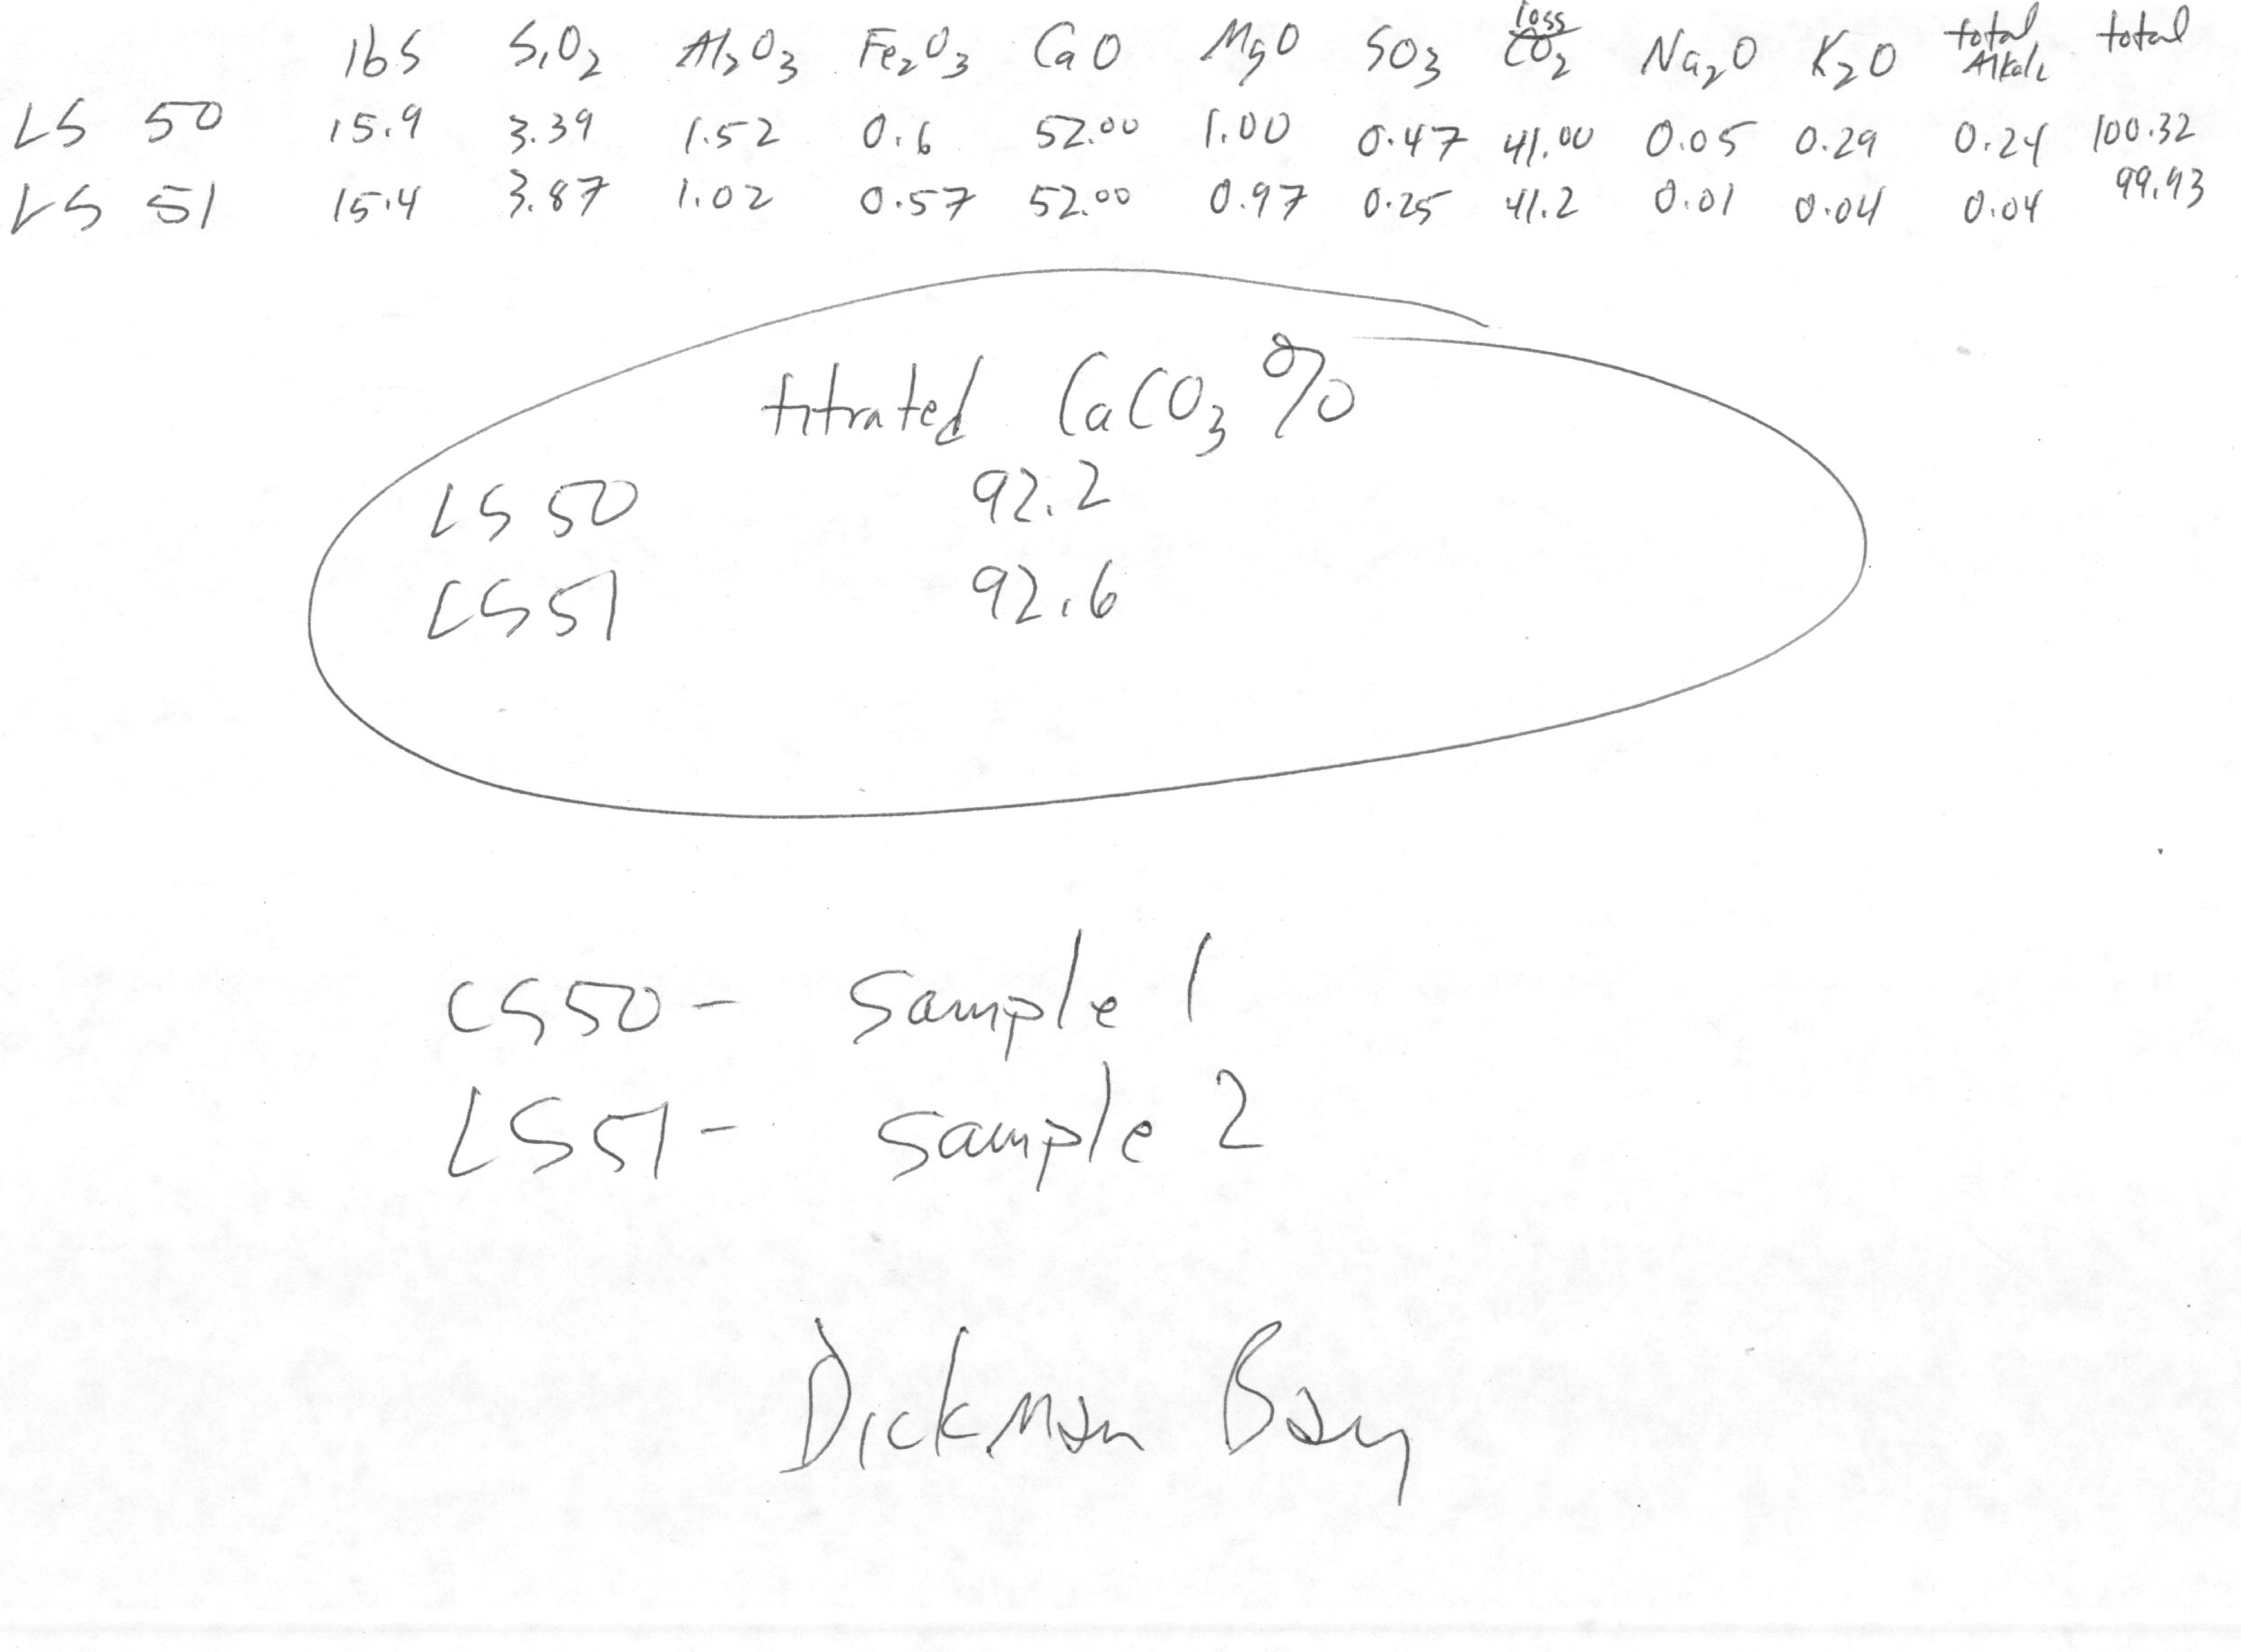 lbs SiO2 Al2O3 Fe2O3 CaO MgO SO3 loss CO2 Na2O K2O total Alkali total
LS 50 15.9 3.39 1.52 0.6 52.00 1.00 0.47 41.00 0.05 0.29 0.24 100.32
LS 51 15.4 3.87 1.02 0.57 52.00 0.97 0.25 41.2 0.01 0.04 0.04 99.93
titrated CaCO3 %
LS 50 92.2
LS 51 92.6
LS50 - Sample 1
LS51 - Sample 2
Dickman Bay